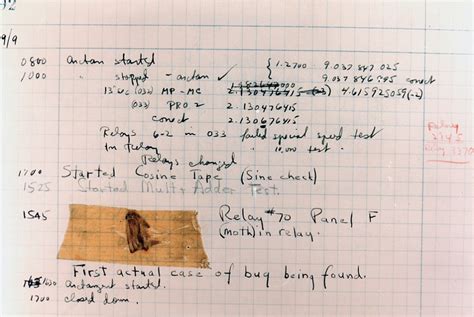 92
9/9
0800 antan started { 1.2700 9.037 847 025
1000 " stopped - antan ✓ 9.037 846 995 conect
13"uc (032) MP - MC 2.130476415 (-3) 4.615925059(-2)
(033) PRO 2 2.130476415
conect 2.130676415
Relays 6-2 in 033 failed special speed test
in relay " 11,000 test.
Relays changed
1700 Started Cosine Tape (Sine check)
1525 Started Mult + Adder Test.
1545 Relay #70 Panel F
(moth) in relay.
First actual case of bug being found.
1630 antangent started.
1700 closed down.
Relay
2145
Relay 3370